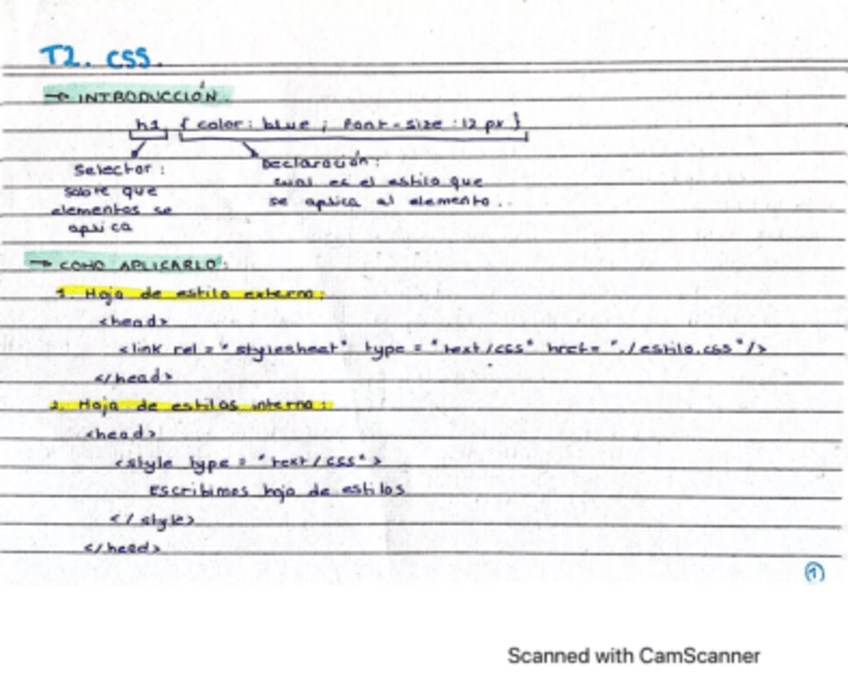 T2. CSS.
→ INTRODUCCIÓN.
h1 { color: blue ; font-size :12 px }
Selector :
sobre que
elementos se
aplica
Declaración :
cual es el estilo que
se aplica al elemento..
→ COMO APLICARLO:
1. Hoja de estilo externa:
<head>
<link rel = "stylesheet" type = "text/css" href= "./estilo.css"/>
</head>
2. Hoja de estilos interna:
<head>
<style type = "text/css">
Escribimos hoja de estilos
</style>
</head>
1
Scanned with CamScanner